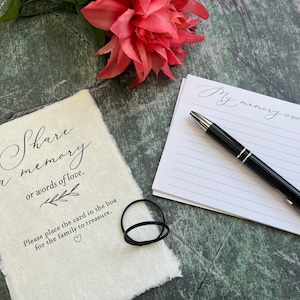 Share
a memory
or words of love.
Please place the card in the box
for the family to treasure.
My memory